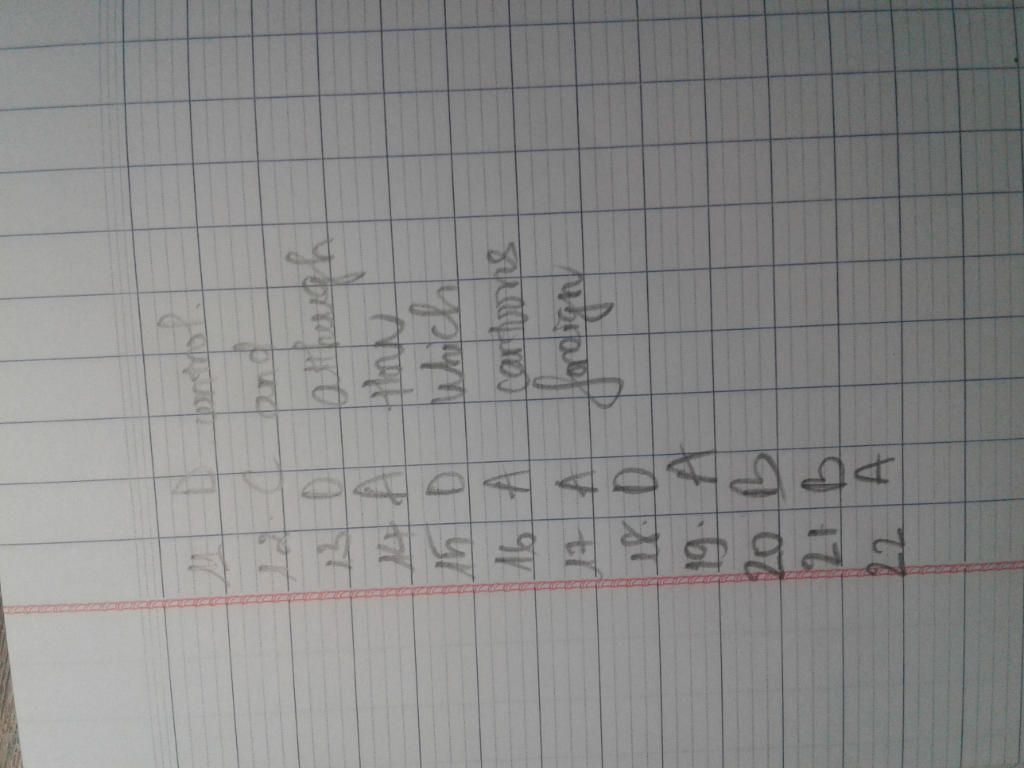 11 D until.
12 C and
13 D although
14 A How
15 D Which
16 A cartoons
17 A foreign
18. D
19. A
20 B
21 B
22 A